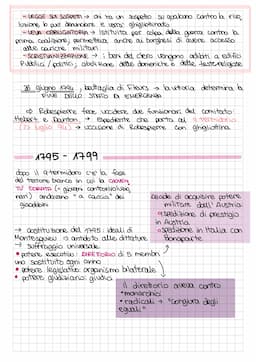 - LEGGE SUI SOSPETTI → chi ha un sospetto su qualcuno contro la rivo
luzione lo può denunciare e verrà ghigliottinato
- LEVA OBBLIGATORIA → istituita per colpa della guerra contro la
prima coalizione, permetteva anche ai borghesi di avere accesso
alle cariche militari
- SCRISTIANIZZAZIONE → i beni del clero vengono adibiti a edifici
pubblici / politici; abolizione delle domeniche e delle feste religiose
26 giugno 1794, battaglia di Fleurs → la vittoria determina la
FINE DELLO STATO DI EMERGENZA
Robespierre fece uccidere due funzionari del comitato:
Hebert e Danton → Espediente che porta al 9 TERMIDORO
(27 luglio 94) → uccisione di Robespierre con ghigliottina
1795 - 1799
dopo il 9 termidoro c'è la fase
del terrore bianco in cui la GIOVEN
TÙ DORATA (= giovani controrivoluzio
nari) andarono "a caccia" dei
giacobini
→ costituzione del 1795: ideali di
Montesquieu → antidoto alle dittature
→ suffraggio universale
• potere esecutivo: DIRETTORIO di 5 membri
uno sostituito ogni anno
• potere legislativo: organismo bilaterale
• potere giudiziario: giudici
decide di acquisire potere
militare dall'Austria
• spedizione di prestigio
in Austria
• spedizione in Italia con
Bonaparte
il direttorio aveva contro
• monarchici
• radicali → "congiura degli
eguali"